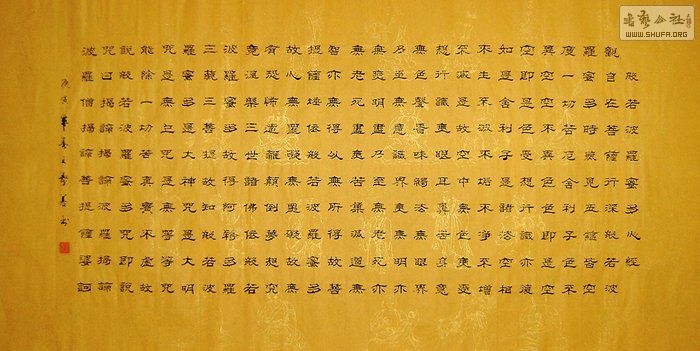 般若波羅蜜多心經
觀自在菩薩行深般若波
羅蜜多時照見五蘊皆空
度一切苦厄舍利子色不
異空空不異色色即是空
空即是色受想行識亦復
如是舍利子是諸法空相
不生不滅不垢不淨不增
不減是故空中無色無受
想行識無眼耳鼻舌身意
無色聲香味觸法無眼界
乃至無意識界無無明亦
無無明盡乃至無老死亦
無老死盡無苦集滅道無
智亦無得以無所得故菩
提薩埵依般若波羅蜜多
故心無罣礙無罣礙故無
有恐怖遠離顛倒夢想究
竟涅槃三世諸佛依般若
波羅蜜多故得阿耨多羅
三藐三菩提故知般若波
羅蜜多是大神咒是大明
咒是無上咒是無等等咒
能除一切苦真實不虛故
說般若波羅蜜多咒即說
咒曰揭諦揭諦波羅揭諦
波羅僧揭諦菩提薩婆訶
庚寅
書藝公社
WWW.SHUFA.ORG